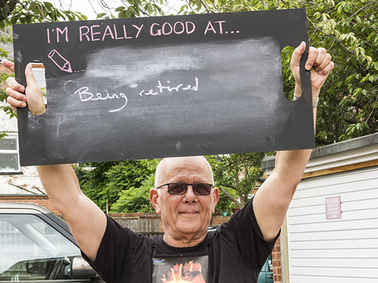 I'M REALLY GOOD AT...
Being retired